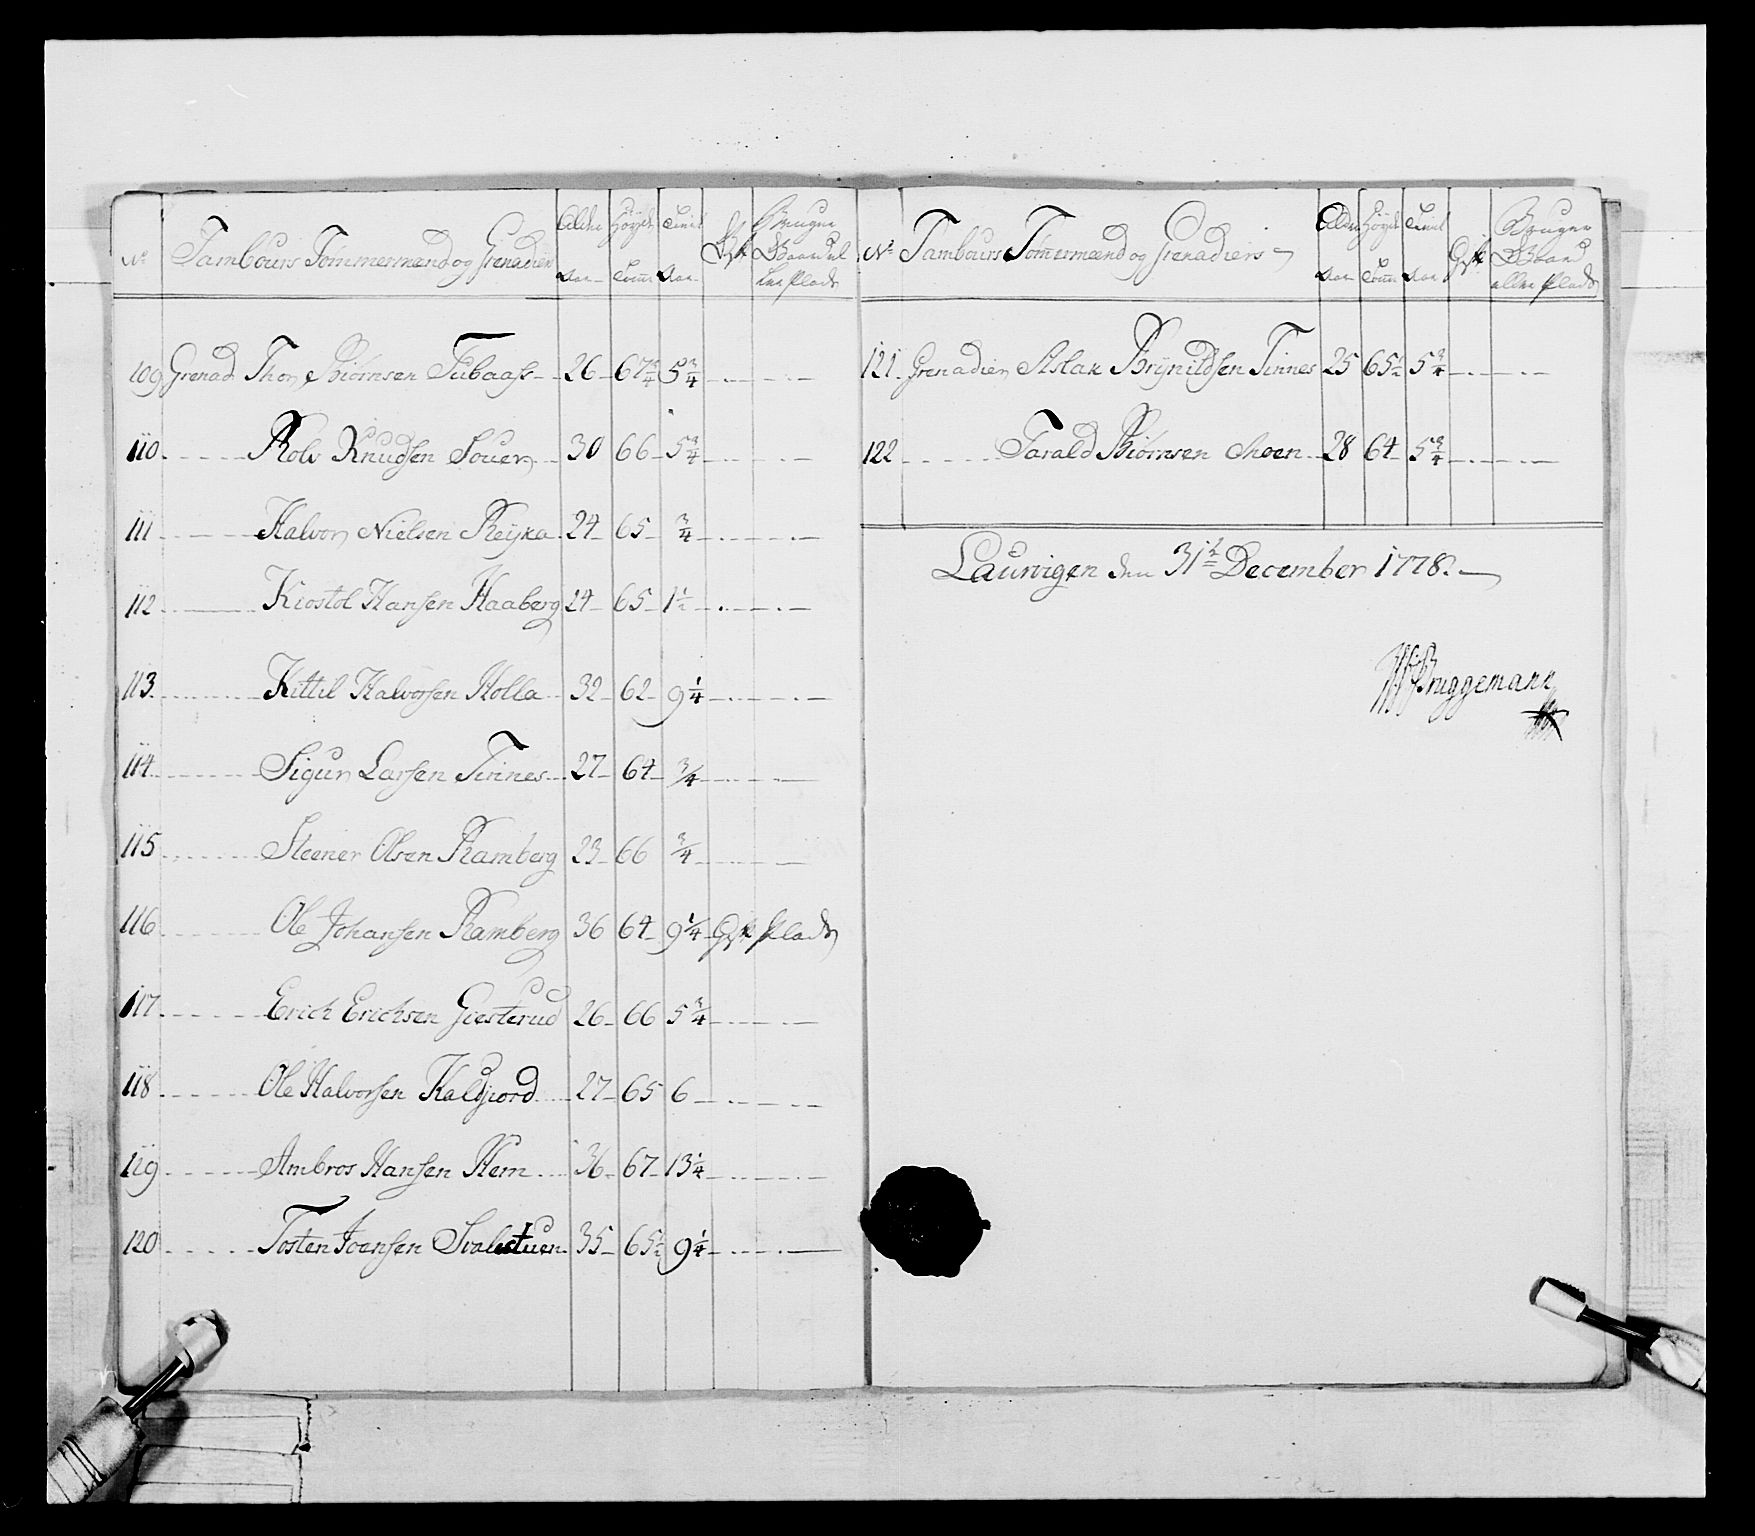 No Tambours Tømmermænd og Grenadier Alder Aar Høyde Tomme Tient Aar Gift Bruger Gaard eller Plads
109 Grenad Thor Biørnsen Tubaas 26 67 3/4 5 3/4
110 Rolv Knudsen Souer 30 66 5 3/4
111 Halvor Nielsen Reyka 24 65 3/4
112 Kiostol Hansen Haaberg 24 65 1 1/2
113 Kittil Halvorsen Holla 32 62 9 1/4
114 Sigur Larsen Tinnes 27 64 3/4
115 Steener Olsen Ramberg 23 66 3/4
116 Ole Johansen Ramberg 36 64 9 1/4 Gift Plads
117 Erich Erichsen Giesterud 26 66 5 3/4
118 Ole Halvorsen Kaldjiord 27 65 6
119 Ambros Hansen Hem 36 67 13 1/4
120 Tosten Joensen Svalestuen 35 65 1/2 9 1/4
No Tambours Tømermænd og Grenadiers Alder Aar Høyde Tomm Tient Aar Gift Bruger Gaard eller Plads
121 Grenadier Aslak Brynildsen Tinnes 25 65 1/2 5 3/4
122 Tarald Biørnsen Moen 28 64 5 3/4
Laurvigen den 31te December 1778.
Bruggemann